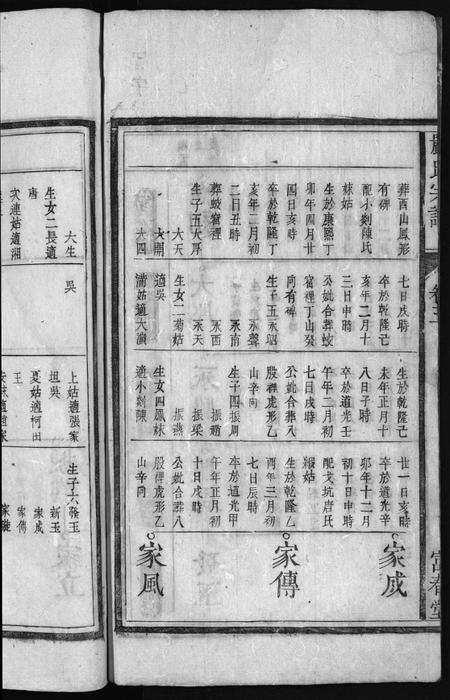 嚴氏宗譜
卷十二
富春堂
葬西山鳳形
有碑
配小劉陳氏
妹姑
生於康熙丁
卯年四月廿
四日亥時
卒於乾隆丁
亥年二月初
二日丑時
葬蛟窩裡
生子五大厚
大天
大開
大四
七日戌時
卒於乾隆己
亥年二月十
三日申時
公妣合葬蛟
窩裡丁山癸
向有碑
生子五永昭
永聲
永南
永西
永天
生女二菊姑
適吳
濡姑適大演
生於乾隆己
未年正月十
八日子時
卒於道光壬
午年二月初
七日戌時
公妣合葬八
股裡虎形乙
山辛向
生子四振周
振廟
振梁
振燕
生女四鳳妹
適小劉陳
廿一日亥時
卒於道光辛
卯年十二月
初十日申時
配戈坑唐氏
綴姑
生於乾隆乙
酉年三月初
七日辰時
卒於道光甲
午年正月初
十日戌時
公妣合葬八
股裡虎形乙
山辛向
家成
家傳
家風
大生
生女二長適
唐
次連姑適湘
吳
上姑適張家
坦吳
夏姑適柯田
王
生子六發玉
新玉
家成
家傳
家立